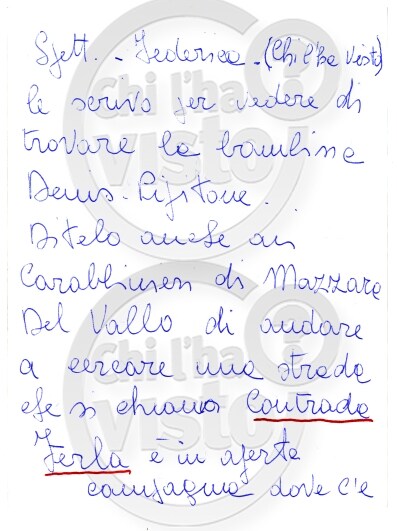 Spett. - Federica - (Chi l'ha visto)
le scrivo per vedere di
trovare la bambina
Denis - Pipitone.
Ditelo anche ai
Carabbinieri di Mazzara
Del Vallo di andare
a cercare una strada
che si chiama Contrada
Ferla è in aperta
campagna dove c'è
Chi l'ha visto?
Chi l'ha visto?